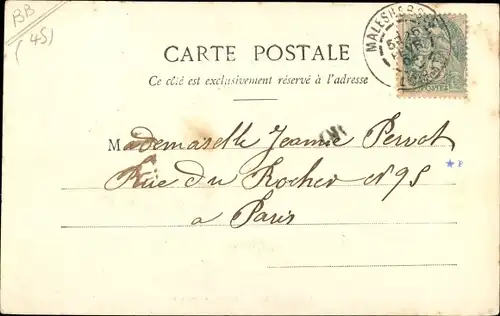 BB
(45)
MALESHERBES
CARTE POSTALE
Ce côté est exclusivement réservé à l'adresse
POSTES
Mademoiselle Jeanne Pervot
Rue du Rocher N 95
a Paris